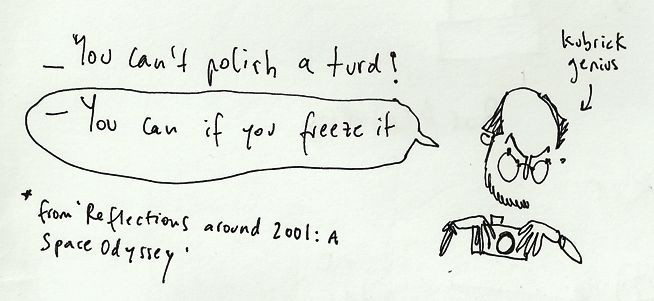 _ You can't polish a turd!
kubrick
genius
- You can if you freeze it
* from 'Reflections around 2001: A
Space Odyssey'